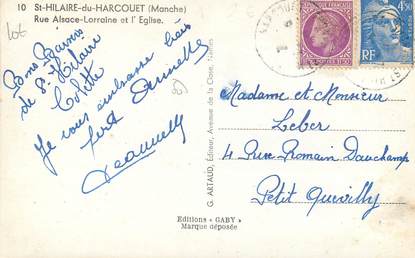 10 St-HILAIRE-du-HARCOUET (Manche)
Rue Alsace-Lorraine et l'Eglise.
lot
Bons Baisers
de St-Hilaire
Colette
Je vous embrasse très
fort
Jeannette
G. ARTAUD, Éditeur, Avenue de la Close, Nantes
Editions "GABY"
Marque déposée
RF
4F50
Madame et Monsieur
Leber
4 Rue Romain Dauchamp
Petit Quevilly